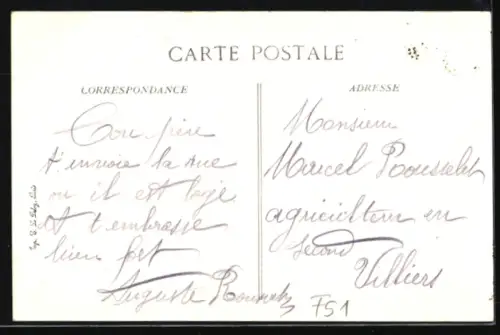 CARTE POSTALE
CORRESPONDANCE
Ton père
t'envoie la vue
ou il est logé
et t'embrasse
bien fort
Auguste
ADRESSE
Monsieur
Marcel
agriculteur en
second
Villiers
F51